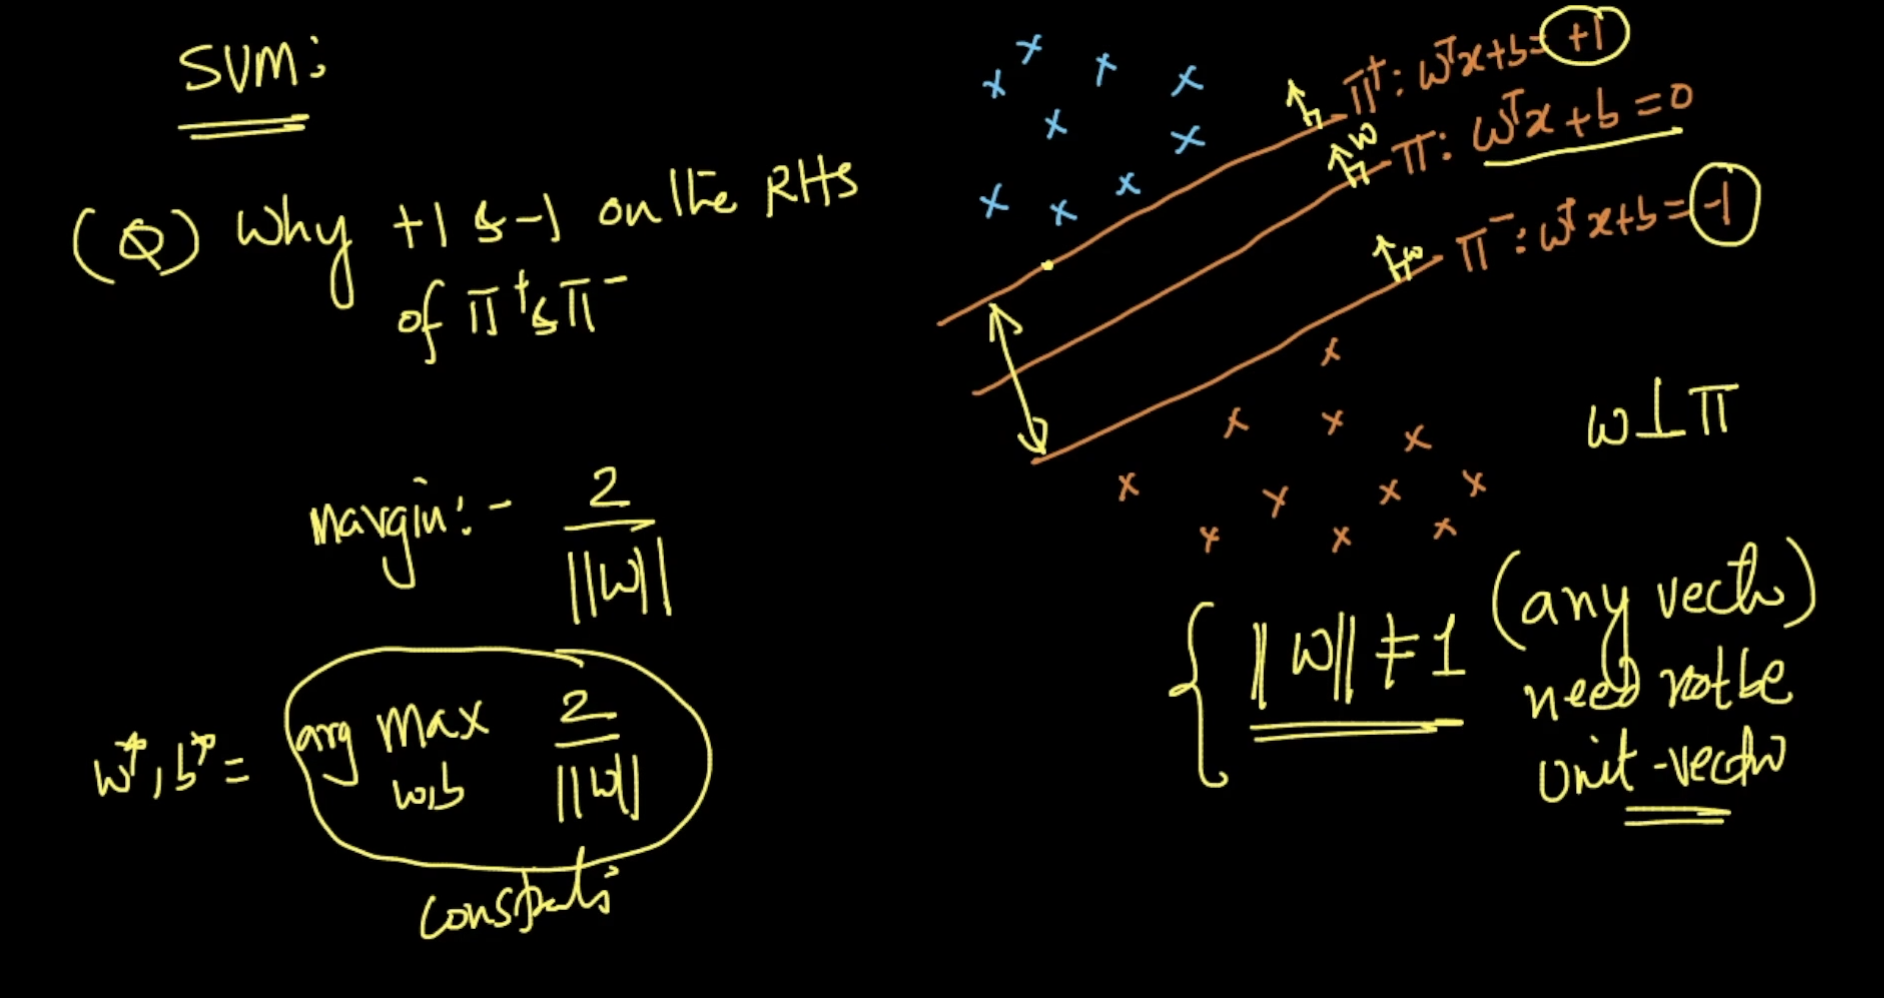 SVM:
(Q) Why +1 & -1 on the RHS
of π⁺ & π⁻
Margin:- 2
||w||
w*, b* = arg max 2
w,b ||w||
π⁺: wᵀx+b = +1
w π: wᵀx + b = 0
w π⁻: wᵀx+b = -1
w ⊥ π
{ ||w|| ≠ 1 (any vector)
need not be
unit-vector